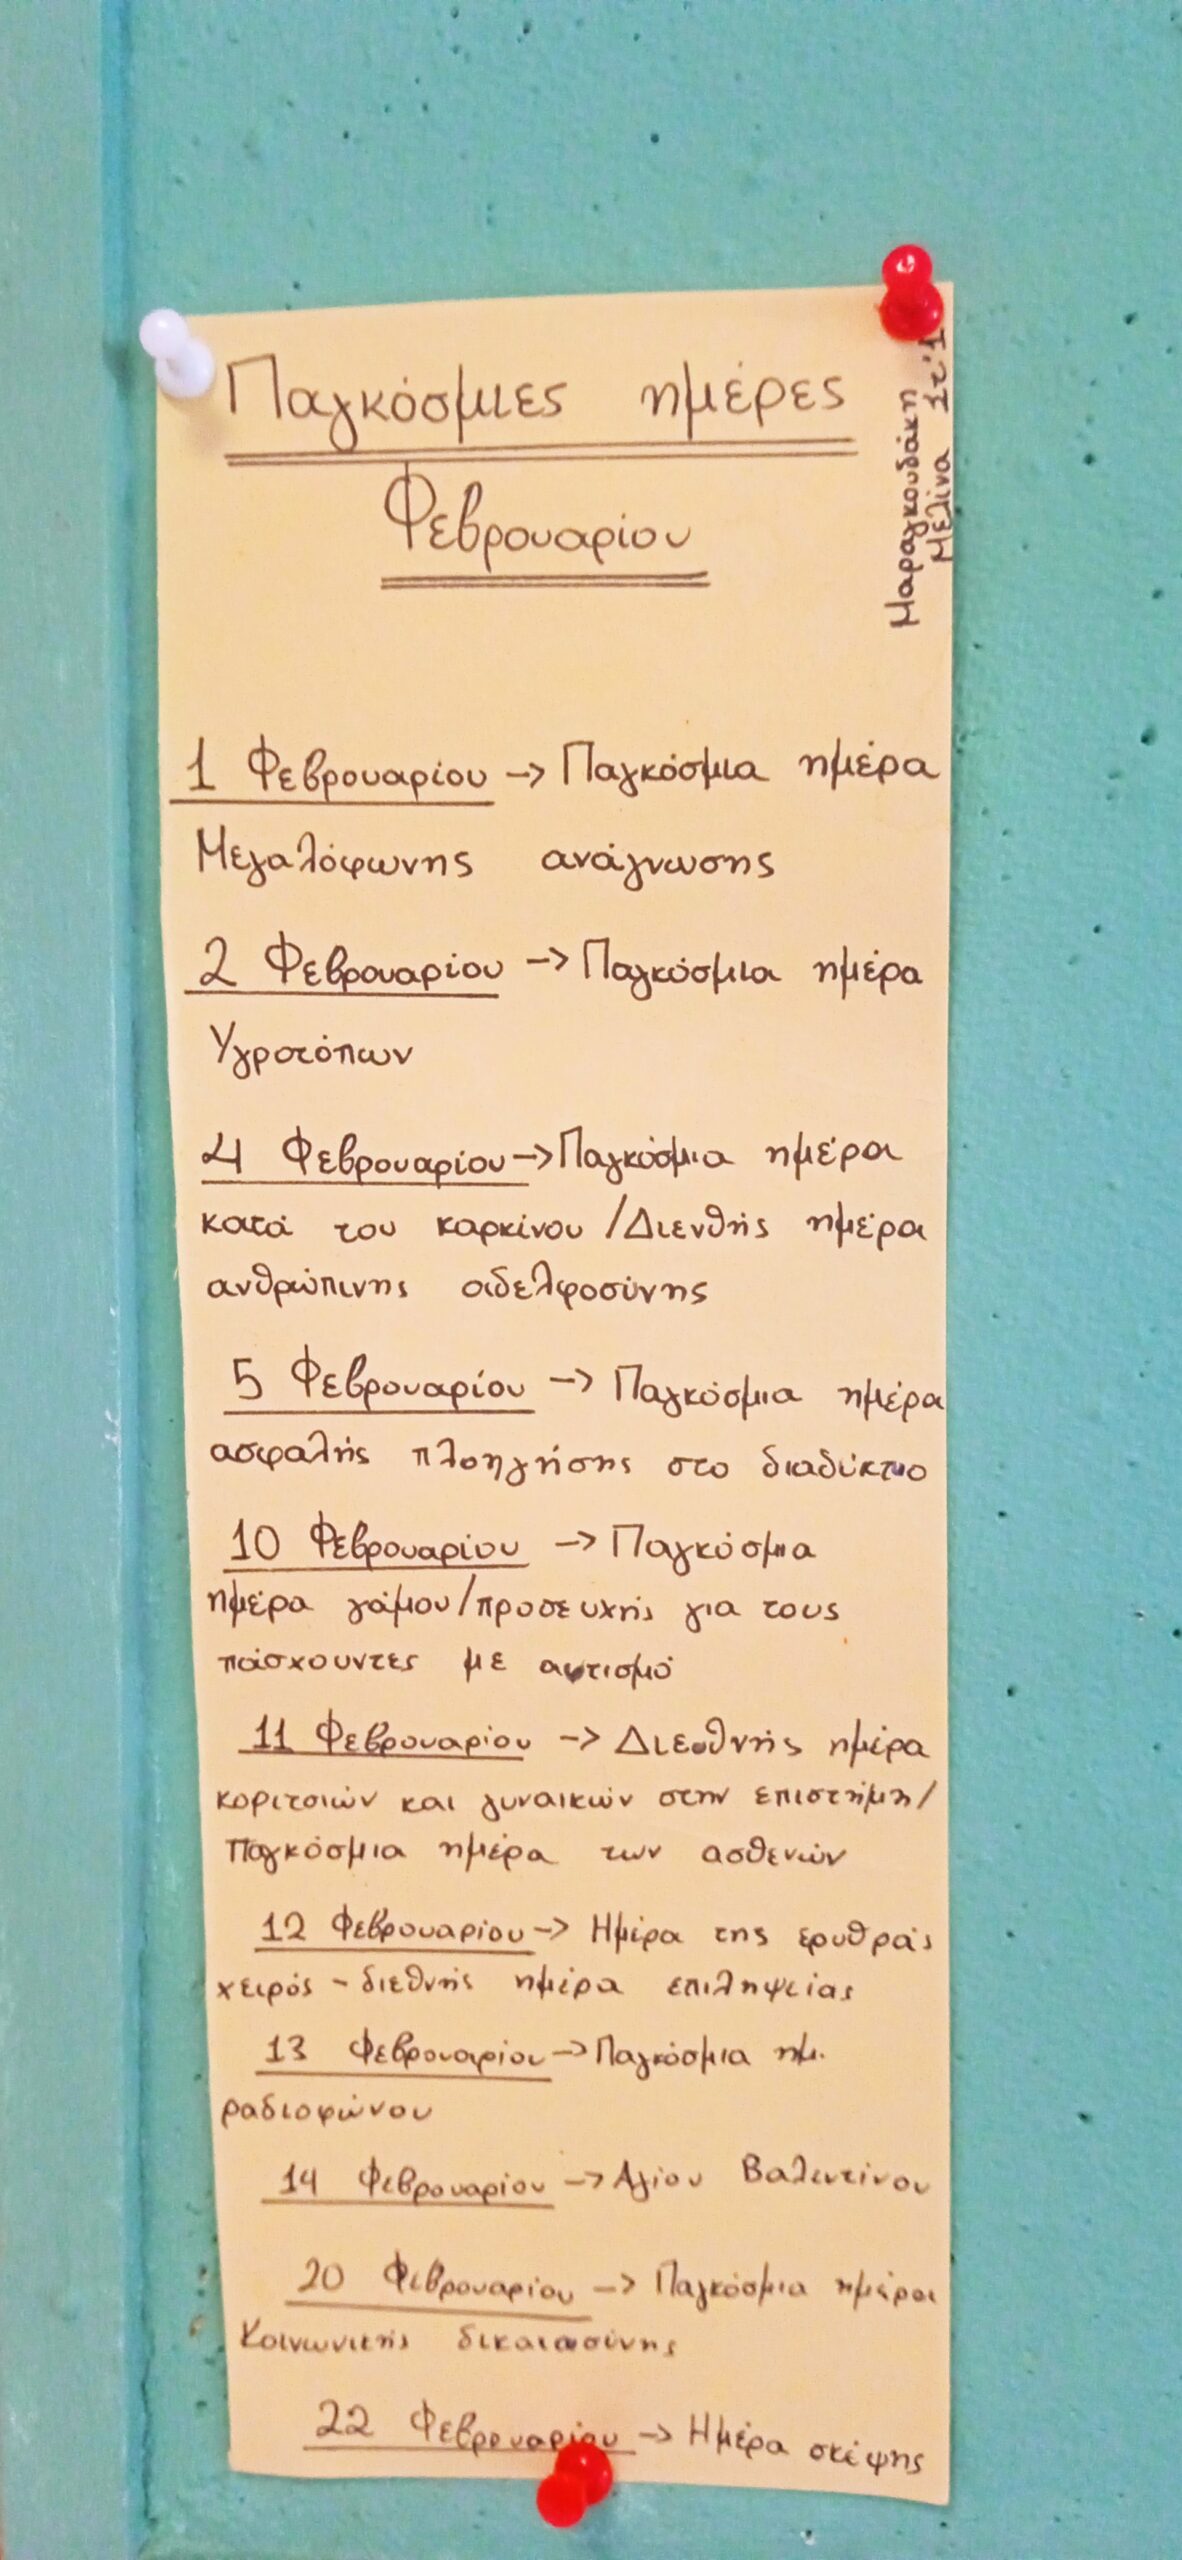 Παγκόσμιες ημέρες
Φεβρουαρίου
Μαραγκουδάκη
Μελίνα Στ'1
1 Φεβρουαρίου -> Παγκόσμια ημέρα
Μεγαλόφωνης ανάγνωσης
2 Φεβρουαρίου -> Παγκόσμια ημέρα
Υγροτόπων
4 Φεβρουαρίου -> Παγκόσμια ημέρα
κατά του καρκίνου /Διενθής ημέρα
ανθρώπινης αδελφοσύνης
5 Φεβρουαρίου -> Παγκόσμια ημέρα
ασφαλής πλοηγήσης στο διαδύκτιο
10 Φεβρουαρίου -> Παγκόσμια
ημέρα γάμου/προσευχής για τους
πάσχουντες με αυτισμό
11 Φεβρουαρίου -> Διεθνής ημέρα
κοριτσιών και γυναικών στην επιστήμη/
Παγκόσμια ημέρα των ασθενών
12 Φεβρουαρίου -> Ημέρα της ερυθράς
χειρός - διεθνής ημέρα επιληψείας
13 Φεβρουαρίου -> Παγκόσμια ημ.
ραδιοφώνου
14 Φεβρουαρίου -> Αγίου Βαλεντίνου
20 Φεβρουαρίου -> Παγκόσμια ημέρα
Κοινωνικής δικαιασύνης
22 Φεβρουαρίου -> Ημέρα σκέψης